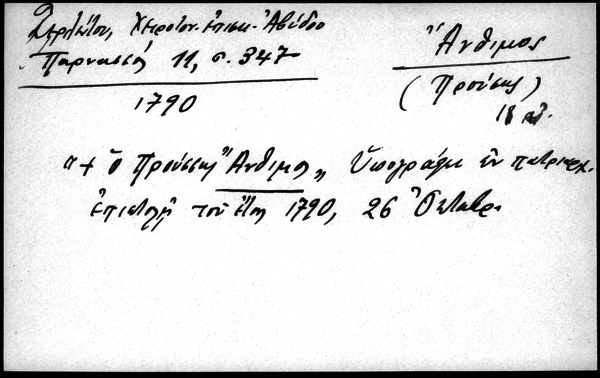 Χειροτον. ἐπισκ. Ἀβύδου
Παρνασσός 11, σ. 347
1790
Ἄνθιμος
(Προύσης)
18 αἰ.
"+ ὁ Προύσης Ἄνθιμος" Ὑπογράφει ἐν πατριαρχ.
ἐπιστολῇ τοῦ ἔτους 1790, 26 Ὀκτωβρ.